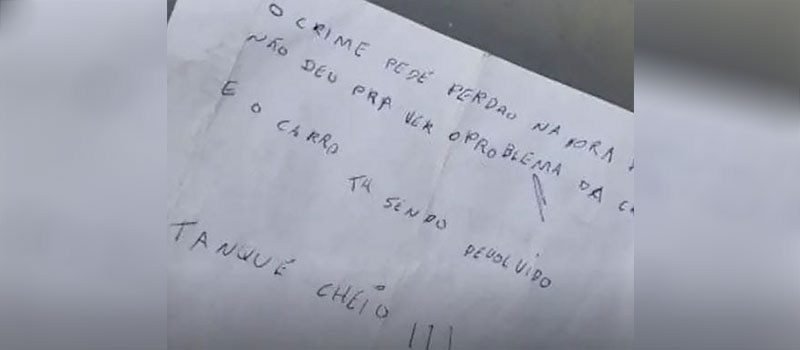 O CRIME PEDE PERDÃO NA HORA
NÃO DEU PRA VER O PROBLEMA DA
E O CARRO TA SENDO DEVOLVIDO
TANQUE CHEIO !!!